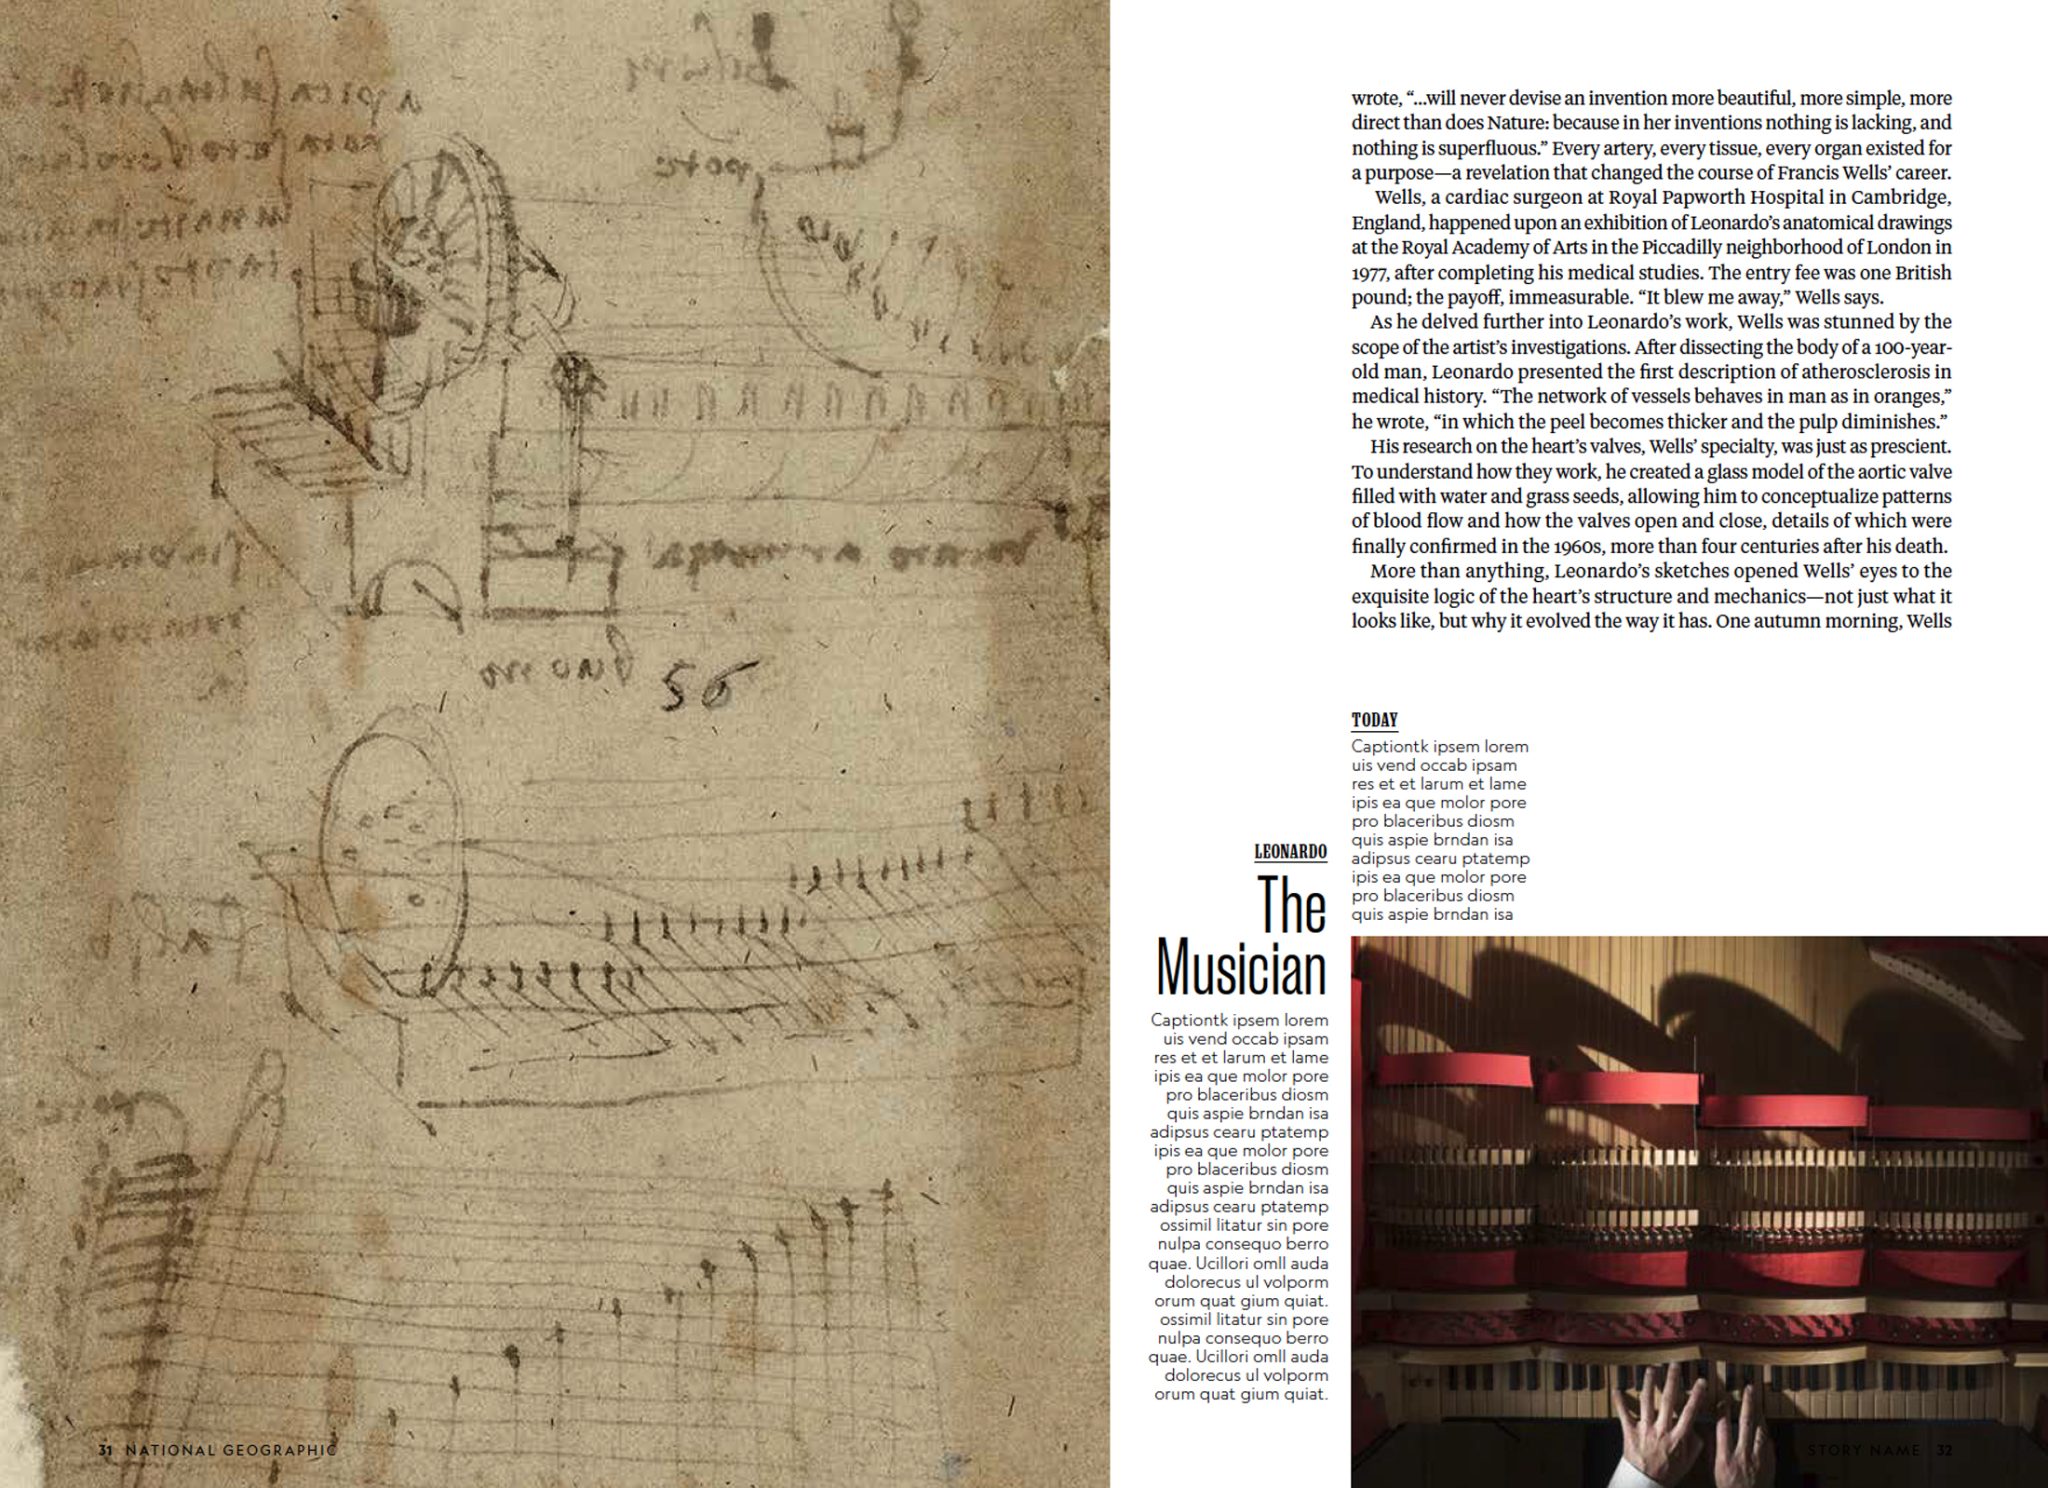 56
31 NATIONAL GEOGRAPHIC
wrote, “...will never devise an invention more beautiful, more simple, more
direct than does Nature: because in her inventions nothing is lacking, and
nothing is superfluous.” Every artery, every tissue, every organ existed for
a purpose—a revelation that changed the course of Francis Wells’ career.
Wells, a cardiac surgeon at Royal Papworth Hospital in Cambridge,
England, happened upon an exhibition of Leonardo’s anatomical drawings
at the Royal Academy of Arts in the Piccadilly neighborhood of London in
1977, after completing his medical studies. The entry fee was one British
pound; the payoff, immeasurable. “It blew me away,” Wells says.
As he delved further into Leonardo’s work, Wells was stunned by the
scope of the artist’s investigations. After dissecting the body of a 100-year-
old man, Leonardo presented the first description of atherosclerosis in
medical history. “The network of vessels behaves in man as in oranges,”
he wrote, “in which the peel becomes thicker and the pulp diminishes.”
His research on the heart’s valves, Wells’ specialty, was just as prescient.
To understand how they work, he created a glass model of the aortic valve
filled with water and grass seeds, allowing him to conceptualize patterns
of blood flow and how the valves open and close, details of which were
finally confirmed in the 1960s, more than four centuries after his death.
More than anything, Leonardo’s sketches opened Wells’ eyes to the
exquisite logic of the heart’s structure and mechanics—not just what it
looks like, but why it evolved the way it has. One autumn morning, Wells
TODAY
Captiontk ipsem lorem
uis vend occab ipsam
res et et larum et lame
ipis ea que molor pore
pro blaceribus diosm
quis aspie brndan isa
adipsus cearu ptatemp
ipis ea que molor pore
pro blaceribus diosm
quis aspie brndan isa
LEONARDO
The
Musician
Captiontk ipsem lorem
uis vend occab ipsam
res et et larum et lame
ipis ea que molor pore
pro blaceribus diosm
quis aspie brndan isa
adipsus cearu ptatemp
ipis ea que molor pore
pro blaceribus diosm
quis aspie brndan isa
adipsus cearu ptatemp
ossimil litatur sin pore
nulpa consequo berro
quae. Ucillori omll auda
dolorecus ul volporm
orum quat gium quiat.
ossimil litatur sin pore
nulpa consequo berro
quae. Ucillori omll auda
dolorecus ul volporm
orum quat gium quiat.
STORY NAME 32